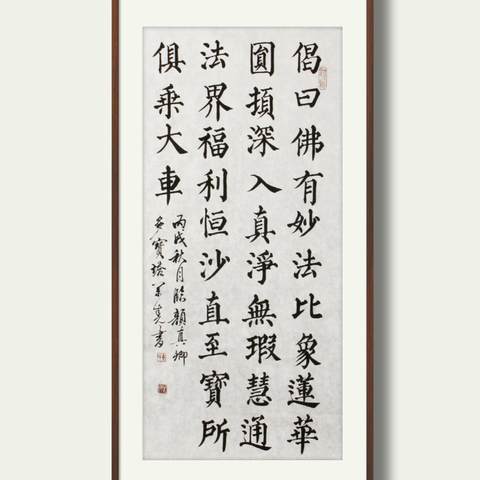 偈曰佛有妙法比象蓮華
圓頓深入真淨無瑕慧通
法界福利恒沙直至寶所
俱乘大車
丙戌秋月臨顏真卿
多寶塔書